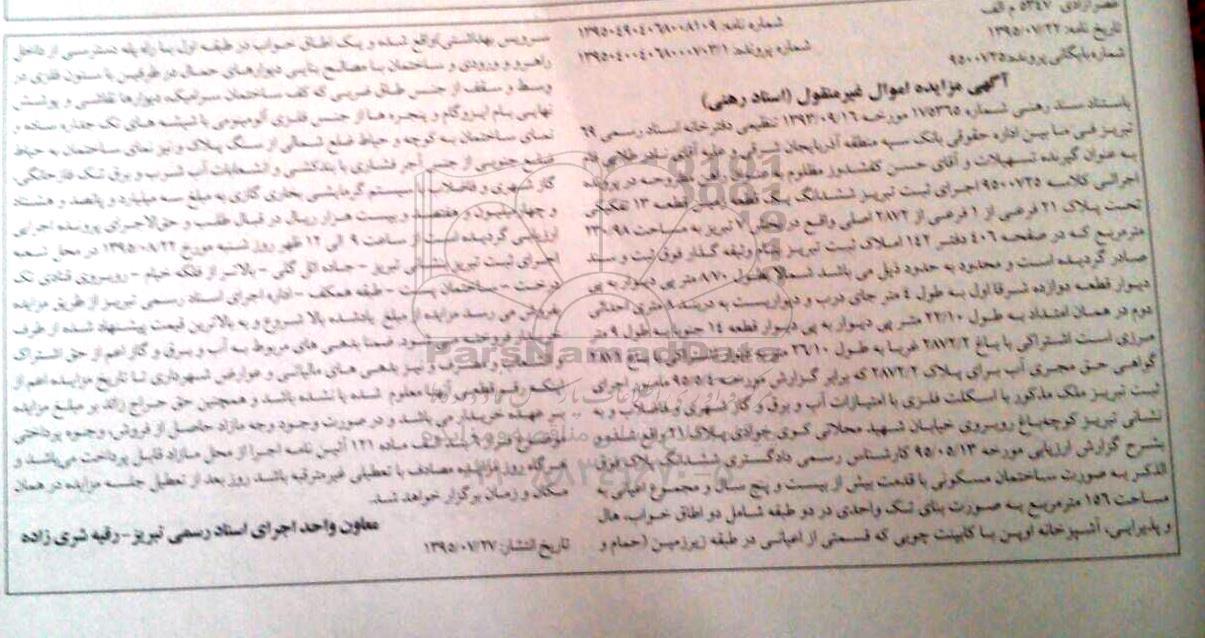 عصر آزادی ۵۳۴۷ م الف
تاریخ نامه: ۱۳۹۵/۰۷/۲۲
شماره نامه: ۱۳۹۵۰۴۹۰۴۰۶۸۰۰۸۱۰۹
شماره بایگانی پرونده: ۹۵۰۰۷۳۵
شماره پرونده: ۱۳۹۵۰۴۰۰۴۰۶۸۰۰۰۷۰۳/۱
آگهی مزایده اموال غیرمنقول (اسناد رهنی)
باستناد سند رهنی شماره ۱۷۵۳۶۵ مورخه ۱۳۹۳/۰۹/۱۶ تنظیمی دفترخانه اسناد رسمی ۲۹
تبریز فی ما بین اداره حقوقی بانک سپه منطقه آذربایجان شرقی و علیه آقای
به عنوان گیرنده تسهیلات و آقای حسن کفشدوز مظلوم در پرونده
اجرائی کلاسه ۹۵۰۰۷۳۵ اجرای ثبت تبریز ششدانگ یک قطعه زمین قطعه ۱۳ تفکیکی
تحت پلاک ۲۱ فرعی از ۱ فرعی از ۲۸۷۲ اصلی واقع در بخش ۷ تبریز به مساحت ۲۳۰/۹۸
مترمربع که در صفحه ۴۰۶ دفتر ۱۴۲ املاک ثبت تبریز بنام وثیقه گذار فوق ثبت و سند
صادر گردیده است و محدود به حدود ذیل می باشد شمالا بطول ۸/۷۰ متر پی دیوار به پی
دیوار قطعه دوازده شرقا اول به طول ۴ متر جای درب و دیواریست به دربند ۸ متری احداثی
دوم در همان امتداد به طول ۲۲/۱۰ متر پی دیوار به پی دیوار قطعه ۱۴ جنوبا به طول ۹ متر
مرزی است اشتراکی با باغ ۲۸۷۲/۲ غربا به طول ۲۶/۱۰ متر به دیوار اشتراکی با باغ
گواهی حق مجری آب برای پلاک ۲۸۷۲/۲ که برابر گزارش مورخه ۹۵/۵/۴ مامور اجرای
ثبت تبریز ملک مذکور با اسکلت فلزی با امتیازات آب و برق و گاز شهری و فاضلاب و به
نشانی تبریز کوچه باغ روبروی خیابان شهید محلاتی کوی جوادی پلاک ۲۱ واقع شده و
بشرح گزارش ارزیابی مورخه ۹۵/۰۵/۱۳ کارشناس رسمی دادگستری ششدانگ پلاک فوق
الذکر به صورت ساختمان مسکونی با قدمت بیش از بیست و پنج سال و مجموع اعیانی به
مساحت ۱۵۶ مترمربع به صورت بنای تک واحدی در دو طبقه شامل دو اطاق خواب، هال
و پذیرایی، آشپزخانه اوپن با کابینت چوبی که قسمتی از اعیانی در طبقه زیرزمین (حمام و
سرویس بهداشتی) واقع شده و یک اطاق خواب در طبقه اول با راه پله دسترسی از داخل
راهرو و ورودی و ساختمان با مصالح بنایی دیوارهای حمال در طرفین با ستون فلزی در
وسط و سقف از جنس طاق ضربی که کف ساختمان سرامیک، دیوارها نقاشی و پوشش
نهایی بام ایزوگام و پنجره ها از جنس فلزی آلومینومی با شیشه های تک جداره ساده و
نمای ساختمان به کوچه و حیاط ضلع شمالی از سنگ پلاک و نیز نمای ساختمان به حیاط
ضلع جنوبی از جنس آجر فشاری با بندکشی و انشعابات آب شرب و برق تک فاز خانگی،
گاز شهری و فاضلاب با سیستم گرمایشی بخاری گازی به مبلغ سه میلیارد و پانصد و هشتاد
و چهار میلیون و هفتصد و بیست هزار ریال در قبال طلب و حق الاجرای پرونده اجرایی
ارزیابی گردیده است از ساعت ۹ الی ۱۲ ظهر روز شنبه مورخ ۱۳۹۵/۰۸/۲۲ در محل شعبه
اجرای ثبت تبریز بنشانی تبریز - جاده ائل گلی - بالاتر از فلکه خیام - روبروی قنادی تک
درخت - ساختمان پست - طبقه همکف - اداره اجرای اسناد رسمی تبریز از طریق مزایده
بفروش می رسد مزایده از مبلغ یادشده بالا شروع و به بالاترین قیمت پیشنهاد شده از طرف
خریدار فروخته می شود. ضمنا بدهی های مربوط به آب و برق و گاز اعم از حق اشتراک
و انشعاب و مصرف و نیز بدهی های مالیاتی و عوارض شهرداری تا تاریخ مزایده اعم از
اینکه رقم قطعی آن معلوم شده یا نشده باشد و همچنین حق حراج زائد بر مبلغ مزایده
بر عهده خریدار می باشد و در صورت وجود وجه مازاد حاصل از فروش، وجوه پرداختی
ماده ۱۲۱ آئین نامه اجرا از محل مازاد قابل پرداخت می باشد و
هرگاه روز مزایده مصادف با تعطیلی غیرمترقبه باشد روز بعد از تعطیل جلسه مزایده در همان
مکان و زمان برگزار خواهد شد.
معاون واحد اجرای اسناد رسمی تبریز - رقیه شری زاده
تاریخ انتشار: ۱۳۹۵/۰۷/۲۷
ParsNamadData